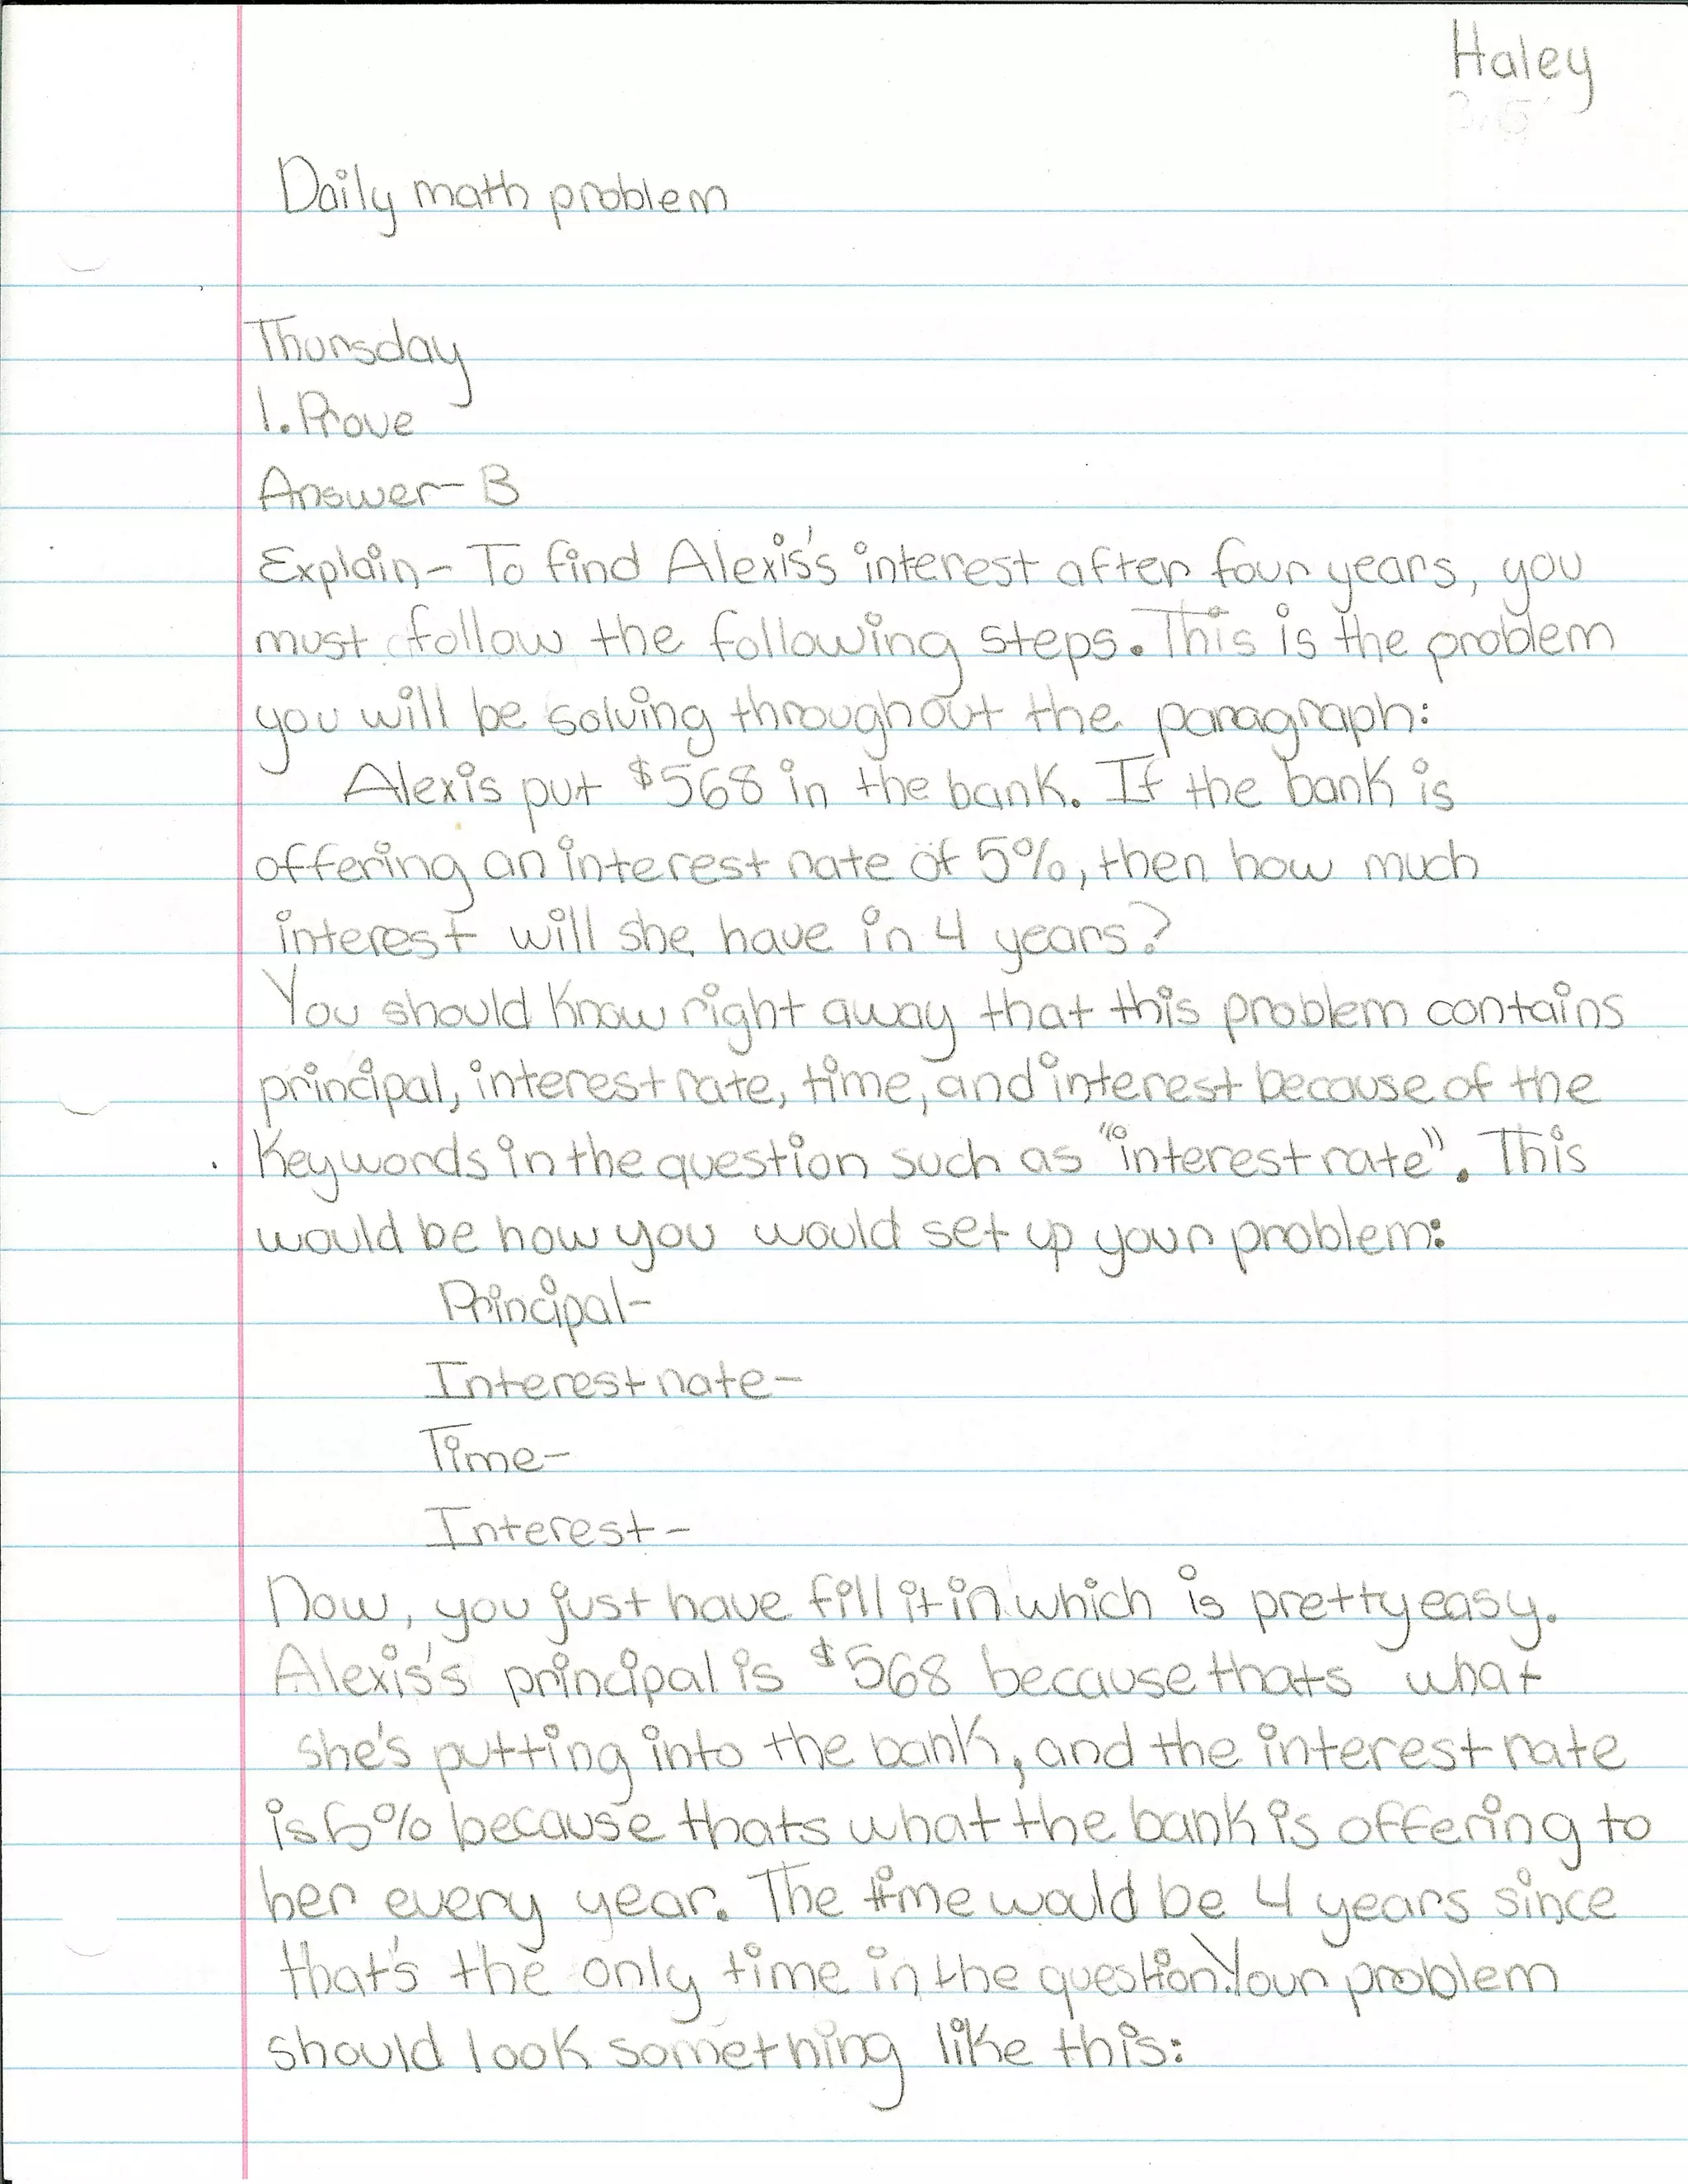 Haley
Daily math problem
Thursday
1. Prove
Answer- B
Explain- To find Alexis's interest after four years, you
must follow the following steps. This is the problem
you will be solving throughout the paragraph:
Alexis put $568 in the bank. If the bank is
offering an interest rate of 5%, then how much
interest will she have in 4 years?
You should know right away that this problem contains
principal, interest rate, time, and interest because of the
keywords in the question such as "interest rate". This
would be how you would set up your problem:
Principal-
Interest rate-
Time-
Interest-
Now, you just have fill it in which is pretty easy.
Alexis's principal is $568 because thats what
she's putting into the bank, and the interest rate
is 5% because thats what the bank is offering to
her every year. The time would be 4 years since
that's the only time in the question. Your problem
should look something like this: